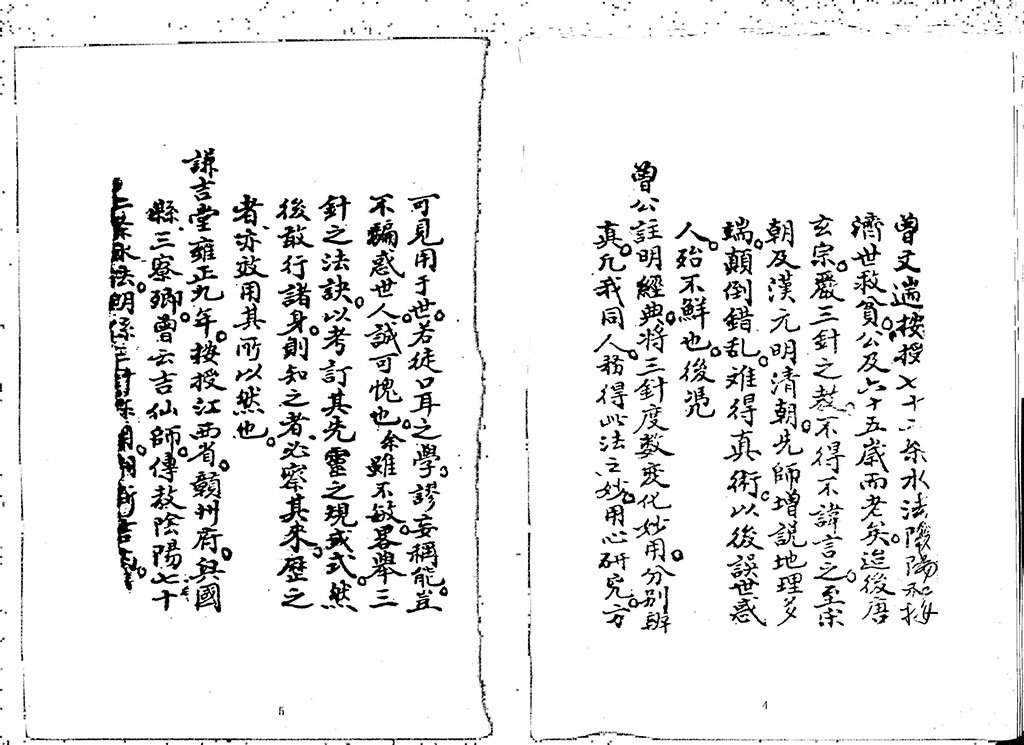 曾文遄按授七十二条水法陰陽和按
濟世救貧公及六十五歲而老矣迨後唐
玄宗嚴三針之教不得不諱言之至宋
朝及漢元明清朝先師增説地理多
端顛倒錯乱难得真術以後誤世惑
人殆不鮮也後凴
曾公註明經典將三針度数变化妙用分别辦
真凢我同人務得此法之妙用心研究方
4
可見用于世若徒口耳之學謬妄稱能豈
不騙惑世人誠可愧也余雖不敏畧舉三
針之法訣以考訂其先靈之現或式然
後敢行諸身則知之者必察其来歷之
者亦效用其所以然也
謙吉堂雍正九年按授江西省贛州府兴國
縣三寮鄉曾云吉仙師傳教陰陽七十
二条水法明
5